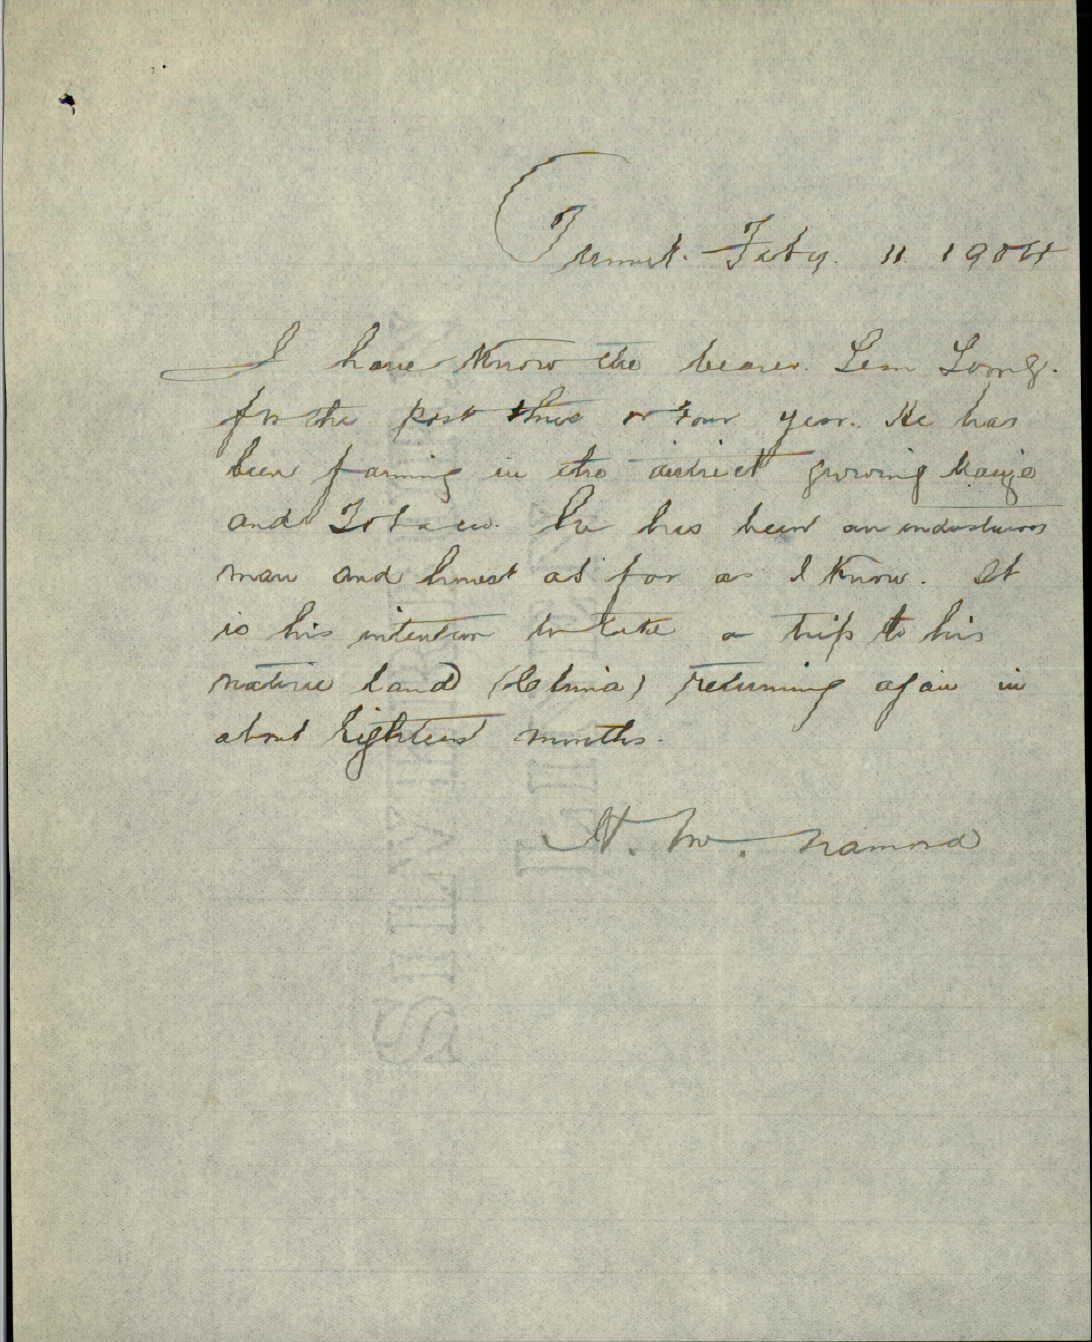 Tumut. Feby. 11 1904
I have Know the bearer. Lem Long.
for the past three or Four year. He has
been farming in the district growing Maize
and Tobacco. he has been an industrious
man and honest as far as I Know. It
is his intention to take a trip to his
native land (China) returning again in
about Eighteen months.